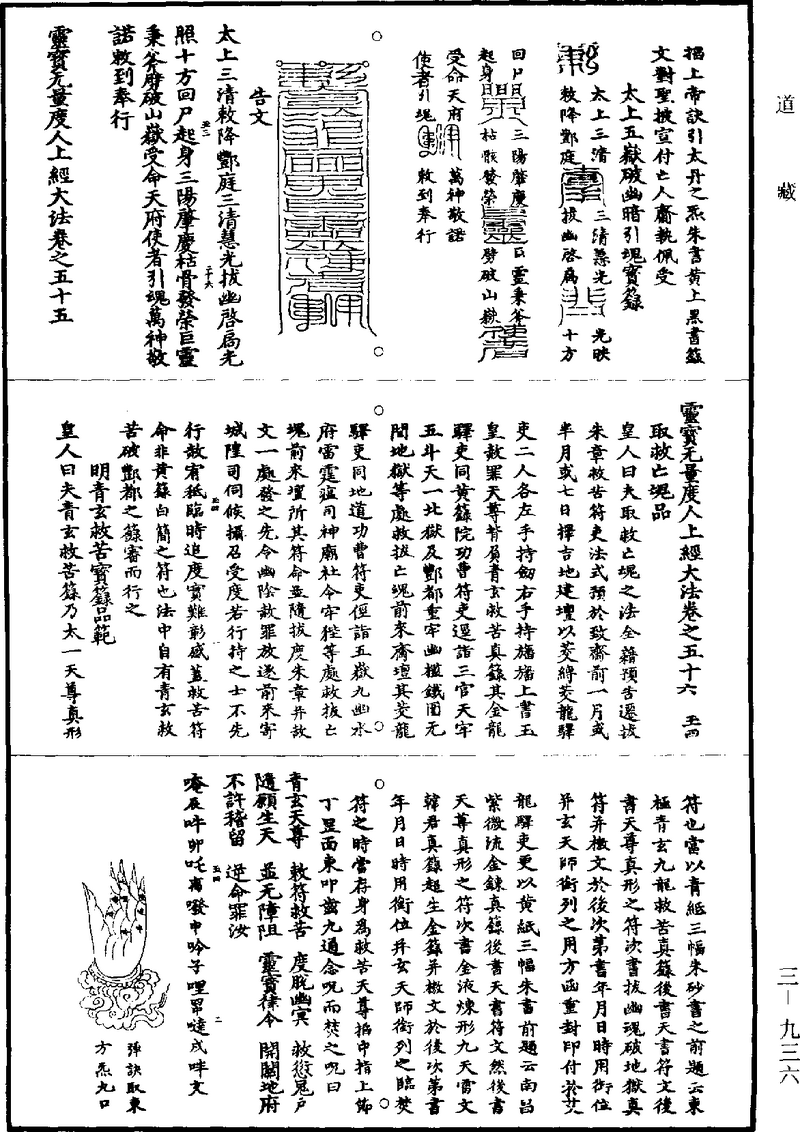 道藏
搯上帝訣引太丹之炁朱書黃上黑書籙
文對聖披宣付亡人齎執佩受
太上五嶽破幽暗引魂寶籙
太上三清 三清慧光 光映
敕降酆庭 拔幽啓扃 十方
回尸 三陽肇慶 巨靈秉斧
起身 枯骸發榮 劈破山嶽
受命天府 萬神敬諾
使者引魂 敕到奉行
告文
太上三清敕降酆庭三清慧光拔幽啓扃光
照十方回尸起身三陽肇慶枯骨發榮巨靈
秉斧劈破山嶽受命天府使者引魂萬神敬
諾敕到奉行
靈寶无量度人上經大法卷之五十五
靈寶无量度人上經大法卷之五十六 五四
取救亡魂品
皇人曰夫取救亡魂之法全藉預告遷拔
朱章救苦符吏法式預於致齋前一月或
半月或七日擇吉地建壇以茭縛茭龍驛
吏二人各左手持劒右手持旛旛上書玉
皇赦罪天尊背負青玄救苦真籙其金龍
驛吏同黃籙院功曹符吏逕詣三官天牢
五斗天一北獄及酆都重牢幽檻鐵圍无
間地獄等處救拔亡魂前來齋壇其茭龍
驛吏同地道功曹符吏徑詣五嶽九幽水
府雷霆瘟司神廟社令牢狴等處救拔亡
魂前來壇所其符命並隨拔度朱章并赦
文一處發之先令幽陰赦罪放逐前來寄
城隍司伺候攝召受度若行持之士不先
行赦宥秖臨時追度實難彰感蓋救苦符
命非黃籙白簡之符也法中自有青玄救
苦破酆都之籙審而行之
明青玄救苦寶籙品範
皇人曰夫青玄救苦籙乃太一天尊真形
符也當以青紙三幅朱砂書之前題云東
極青玄九龍救苦真籙後書天書符文後
書天尊真形之符次書拔幽魂破地獄真
符并檄文於後次第書年月日時用銜位
并玄天師銜列之用方函重封印付於茭
龍驛吏更以黃紙三幅朱書前題云南昌
紫微流金鍊真籙後書天書符文然後書
天尊真形之符次書金液煉形九天雷文
韓君真籙超生金籙并檄文於後次第書
年月日時用銜位并玄天師銜列之臨焚
符之時當存身為救苦天尊搯中指上節
丁罡面東叩齒九通念呪而焚之呪曰
青玄天尊 敕符救苦 度脫幽冥 救愆冤尸
隨願生天 並无障阻 靈寶律令 開闢地府
不許稽留 逆命罪汝
唵辰吽卯吒寅㘕申唅子哩罡噠戌吽文
彈訣取東
方炁九口
三－九三六